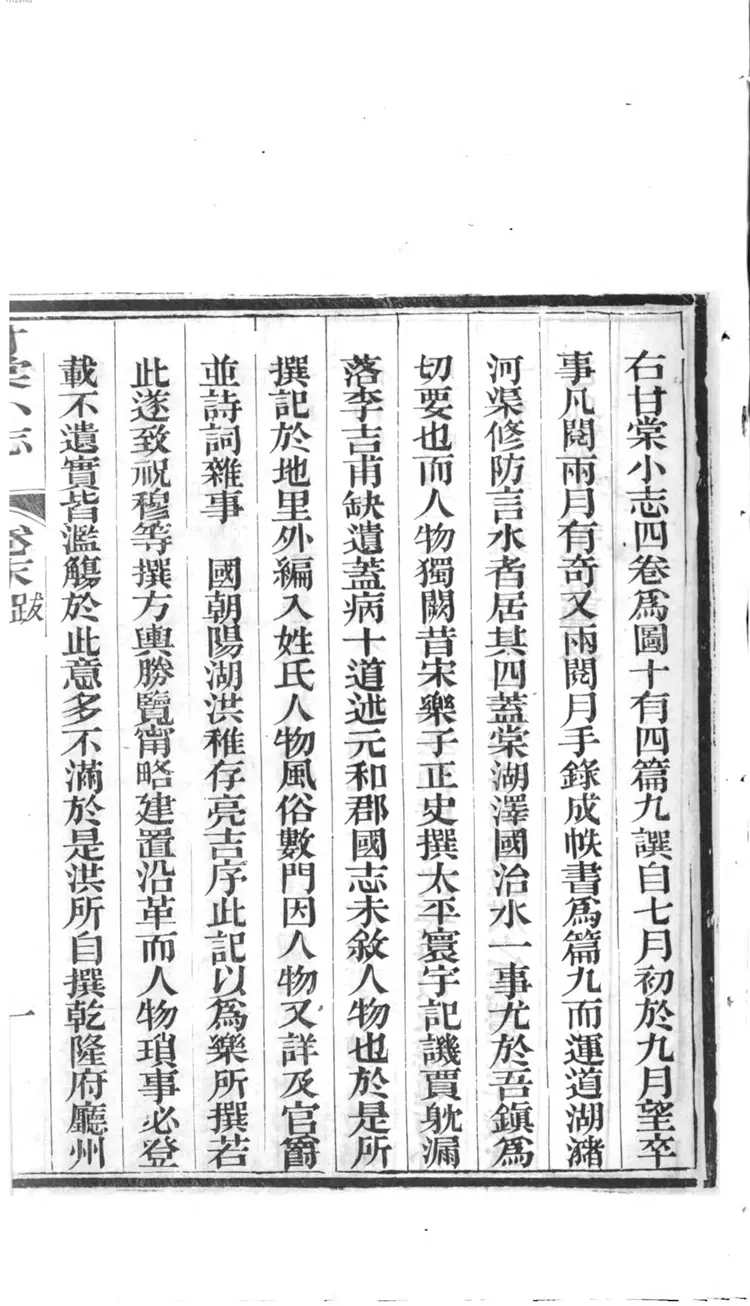 右甘棠小志四卷爲圖十有四篇九譔自七月初於九月望卒
事凡閱兩月有奇又兩閱月手錄成帙書爲篇九而運道湖瀦
河渠修防言水者居其四蓋棠湖澤國治水一事尤於吾鎭爲
切要也而人物獨闕昔宋樂子正史撰太平寰宇記譏賈躭漏
落李吉甫缺遺蓋病十道述元和郡國志未敘人物也於是所
撰記於地里外編入姓氏人物風俗數門因人物又詳及官爵
並詩詞雜事　國朝陽湖洪稚存亮吉序此記以爲樂所撰若
此遂致祝穆等撰方輿勝覽甯略建置沿革而人物瑣事必登
載不遺實皆濫觴於此意多不滿於是洪所自撰乾隆府廳州
甘棠小志 卷末 跋 一